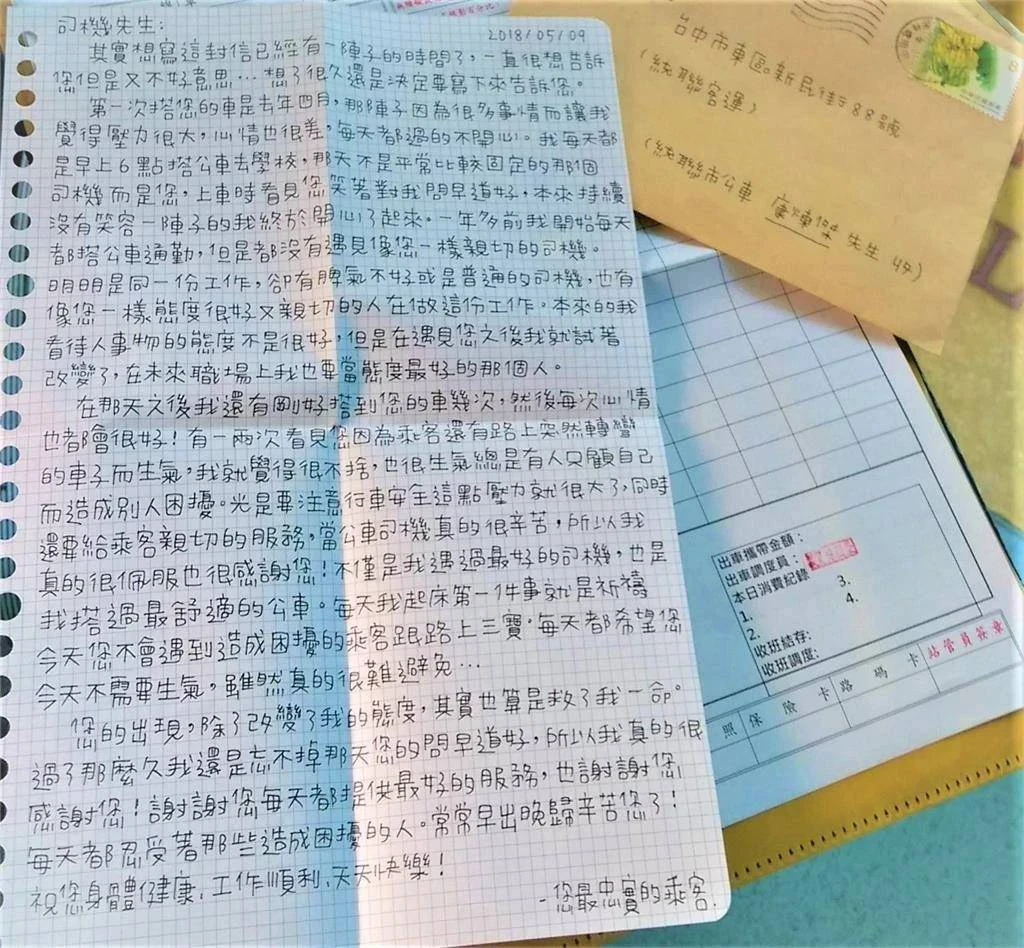 司機先生：
2018/05/09
其實想寫這封信已經有一陣子的時間了，一直很想告訴
您但是又不好意思…想了很久還是決定要寫下來告訴您。
第一次搭您的車是去年四月，那陣子因為很多事情而讓我
覺得壓力很大，心情也很差，每天都過的不開心。我每天都
是早上6點搭公車去學校，那天不是平常比較固定的那個
司機而是您，上車時看見您笑著對我問早道好，本來持續
沒有笑容一陣子的我終於開心了起來。一年多前我開始每天
都搭公車通勤，但是都沒有遇見像您一樣親切的司機。
明明是同一份工作，卻有脾氣不好或是普通的司機，也有
像您一樣態度很好又親切的人在做這份工作。本來的我
看待人事物的態度不是很好，但是在遇見您之後我就試著
改變了，在未來職場上我也要當態度最好的那個人。
在那天之後我還有剛好搭到您的車幾次，然後每次心情
也都會很好！有一兩次看見您因為乘客還有路上突然轉彎
的車子而生氣，我就覺得很不捨，也很生氣總是有人只顧自己
而造成別人困擾。光是要注意行車安全這點壓力就很大了，同時
還要給乘客親切的服務，當公車司機真的很辛苦，所以我
真的很佩服也很感謝您！不僅是我遇過最好的司機，也是
我搭過最舒適的公車。每天我起床第一件事就是祈禱
今天您不會遇到造成困擾的乘客跟路上三寶，每天都希望您
今天不需要生氣，雖然真的很難避免…
您的出現，除了改變了我的態度，其實也算是救了我一命。
過了那麼久我還是忘不掉那天您的問早道好，所以我真的很
感謝您！謝謝您每天都提供最好的服務，也謝謝您
每天都忍受著那些造成困擾的人。常常早出晚歸辛苦您了！
祝您身體健康，工作順利，天天快樂！
-您最忠實的乘客.
台中市東區新民街88號
（統聯客運）
（統聯市公車 廖煉傑 先生 收）
8
出車攜帶金額：
出車調度員：
本日消費紀錄
1.
2.
3.
4.
收班結存：
收班調度：
照 保 險 卡 路 碼 卡 站管員簽章